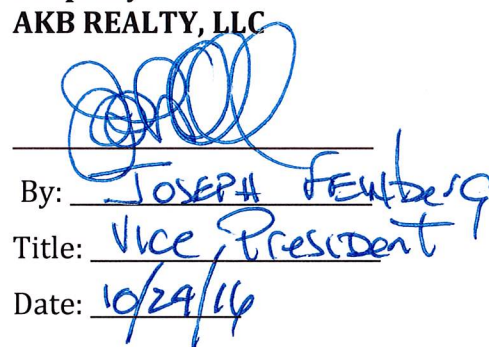 AKB REALTY, LLC
By: JOSEPH
Title: Vice President
Date: 10/24/16